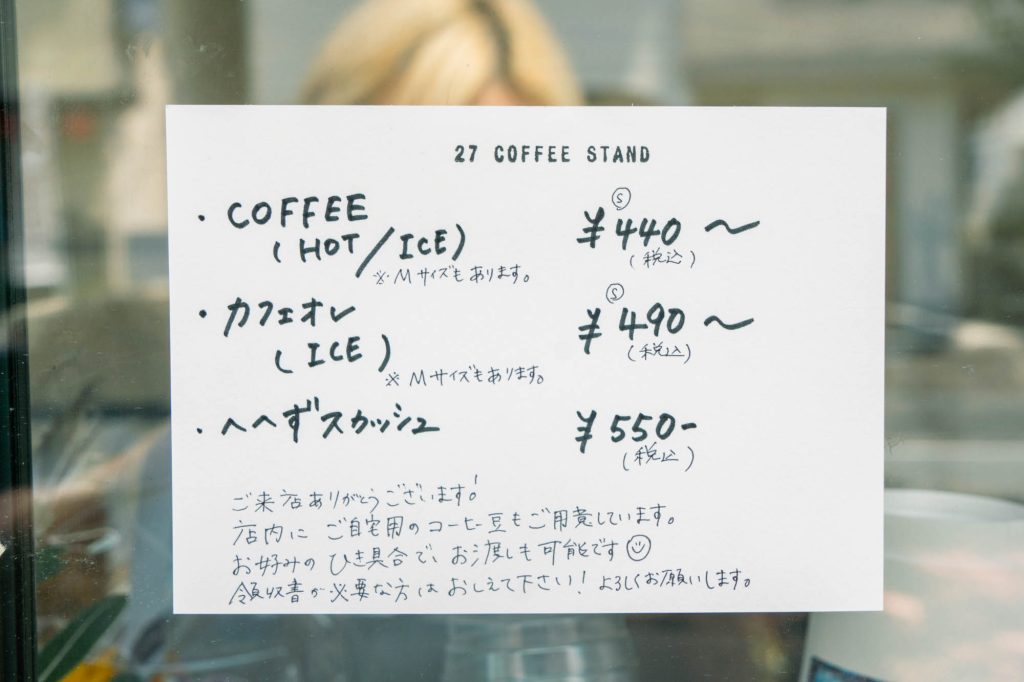 27 COFFEE STAND
・COFFEE Ⓢ ¥440〜
(HOT/ICE) (税込)
※Mサイズもあります。
・カフェオレ Ⓢ ¥490〜
(ICE) (税込)
※Mサイズもあります。
・へへずスカッシュ ¥550-
(税込)
ご来店ありがとうございます!
店内に ご自宅用のコーヒー豆もご用意しています。
お好みの ひき具合で、お渡しも可能です☺
領収書が必要な方は おしえて下さい! よろしくお願いします。